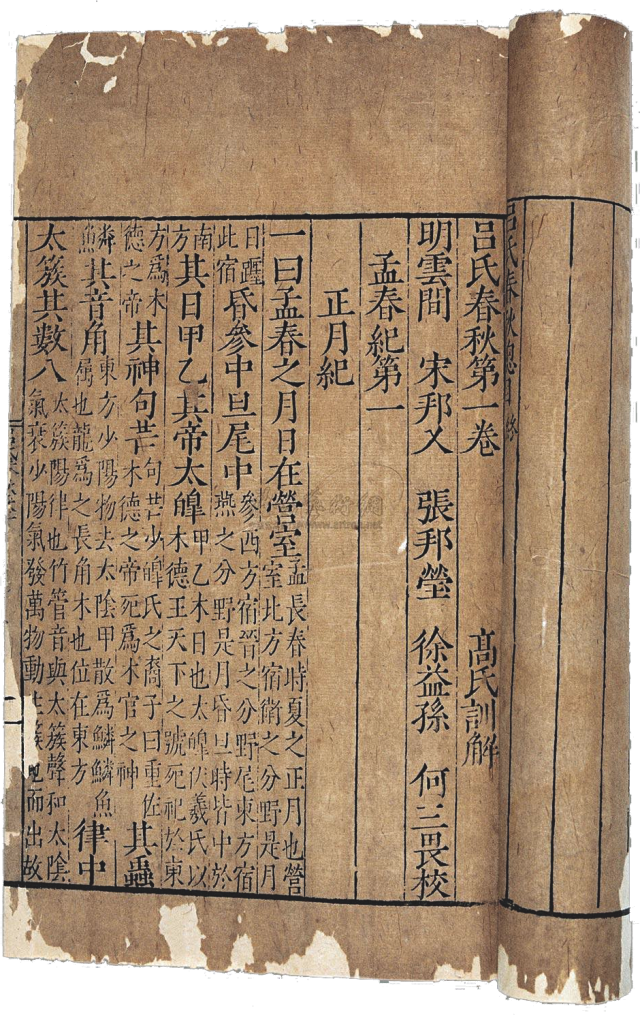 呂氏春秋總目錄
呂氏春秋第一卷　高氏訓解
明雲間　宋邦乂　張邦瑩　徐益孫　何三畏校
孟春紀第一
正月紀
一曰孟春之月日在營室孟長春時夏之正月也營室北方宿衛之分野是月
日躔此宿昏參中旦尾中參西方宿晉之分野尾東方宿燕之分野是月昏旦時皆中於
南方其日甲乙其帝太皥甲乙木日也太皥伏羲氏以木德王天下之號死祀於東
方爲木德之帝其神句芒句芒少皥氏之裔子曰重佐木德之帝死爲木官之神其蟲
鱗魚其音角東方少陽物去太陰甲散爲鱗鱗魚屬也龍爲之長角木也位在東方律中
太簇其數八太簇陽律也竹管音與太簇聲和太陰氣衰少陽氣發萬物動生簇地而出故